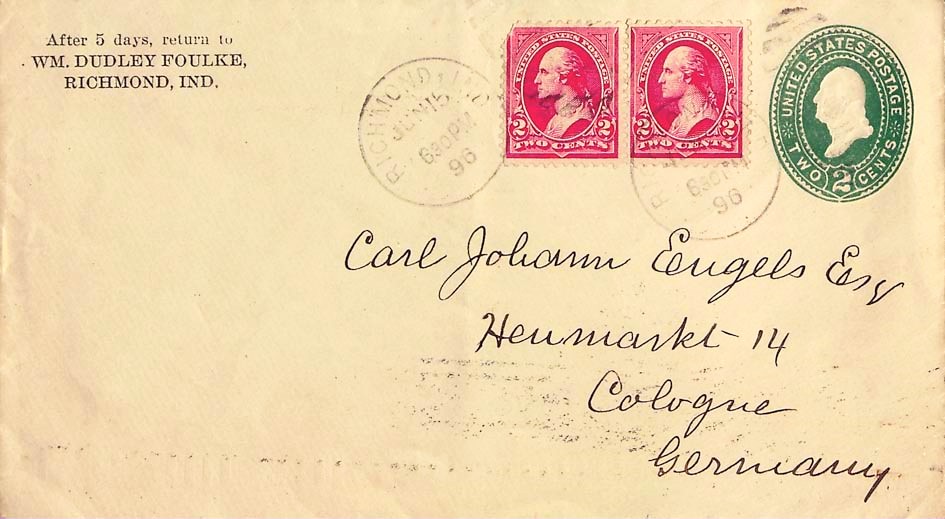 After 5 days, return to
WM. DUDLEY FOULKE,
RICHMOND, IND.
RICHMOND, IND
JUN 15
630 PM
96
UNITED STATES POSTAGE
2 2
TWO CENTS
UNITED STATES POSTAGE
2 2
TWO CENTS
RIC
630 PM
96
UNITED STATES POSTAGE
TWO 2 CENTS
Carl Johann Eugels Esq
Heumarkt 14
Cologne
Germany.